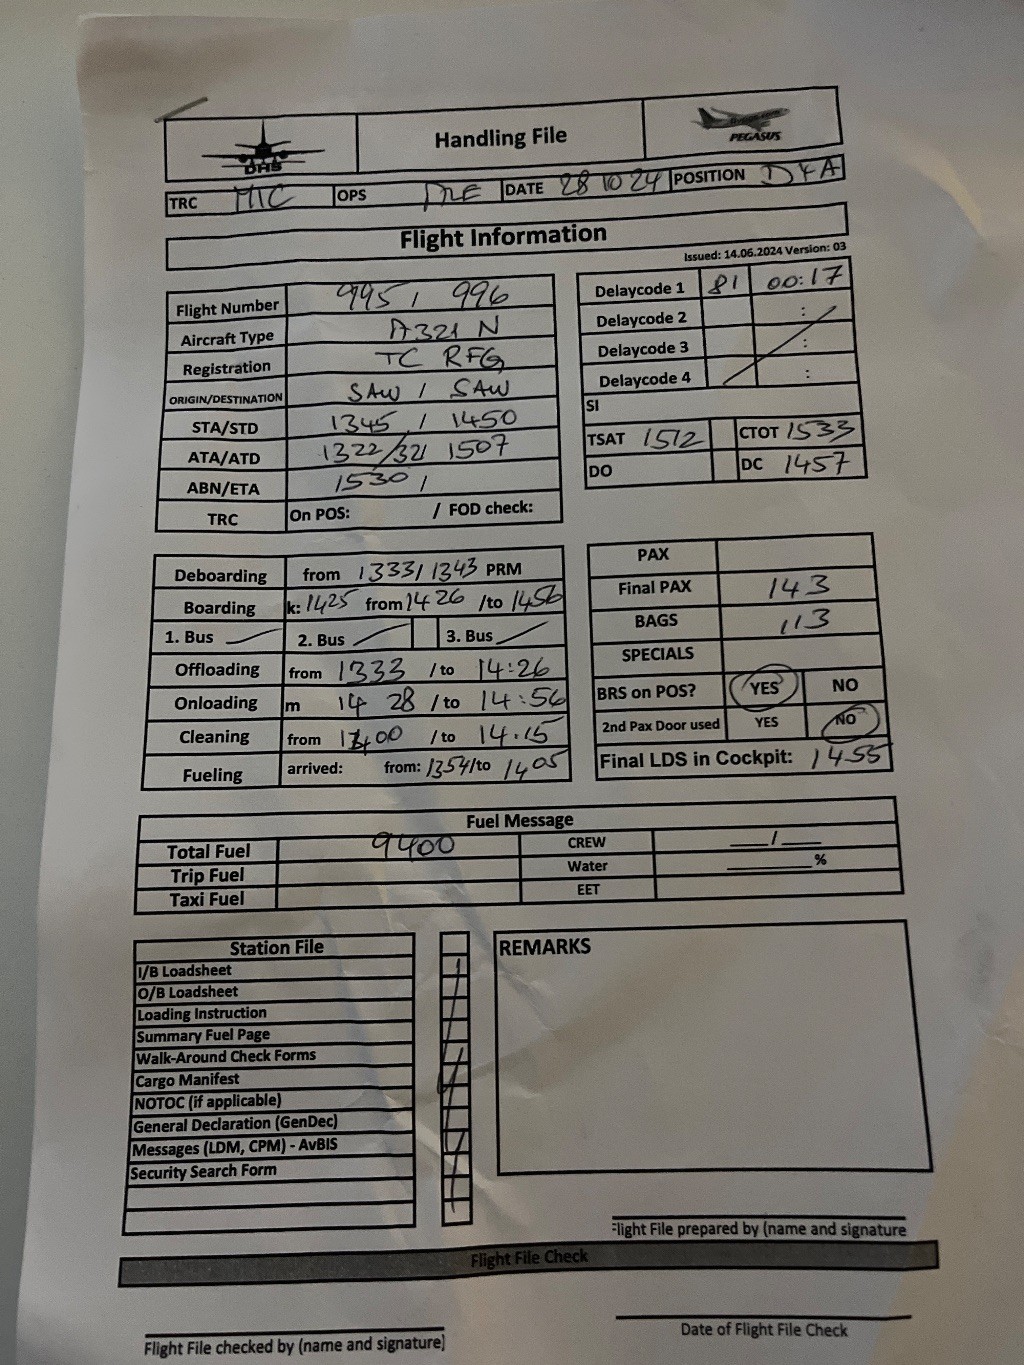 DHS
Handling File
PEGASUS
TRC MIC OPS DATE 28 10 24 POSITION
Flight Information
Issued: 14.06.2024 Version: 03
Flight Number 995 / 996
Aircraft Type A321 N
Registration TC RFG
ORIGIN/DESTINATION SAW / SAW
STA/STD 1345 / 1450
ATA/ATD 1322/32/ 1507
ABN/ETA 1530 /
TRC On POS: / FOD check:
Delaycode 1 81 00:17
Delaycode 2 :
Delaycode 3 :
Delaycode 4 :
SI
TSAT 1512 CTOT 1533
DO DC 1457
Deboarding from 1333 / 1343 PRM
Boarding k: 1425 from 1426 /to 1456
1. Bus 2. Bus 3. Bus
Offloading from 1333 /to 14:26
Onloading m 14 28 /to 14:56
Cleaning from /to 14.15
Fueling arrived: from: 1354 /to 1405
PAX
Final PAX 143
BAGS 113
SPECIALS
BRS on POS? YES NO
2nd Pax Door used YES NO
Final LDS in Cockpit: 1455
Fuel Message
Total Fuel 9400 CREW ___/___
Trip Fuel Water ______%
Taxi Fuel EET
Station File
I/B Loadsheet
O/B Loadsheet
Loading Instruction
Summary Fuel Page
Walk-Around Check Forms
Cargo Manifest
NOTOC (if applicable)
General Declaration (GenDec)
Messages (LDM, CPM) - AvBIS
Security Search Form
REMARKS
Flight File prepared by (name and signature
Flight File Check
Flight File checked by (name and signature)
Date of Flight File Check